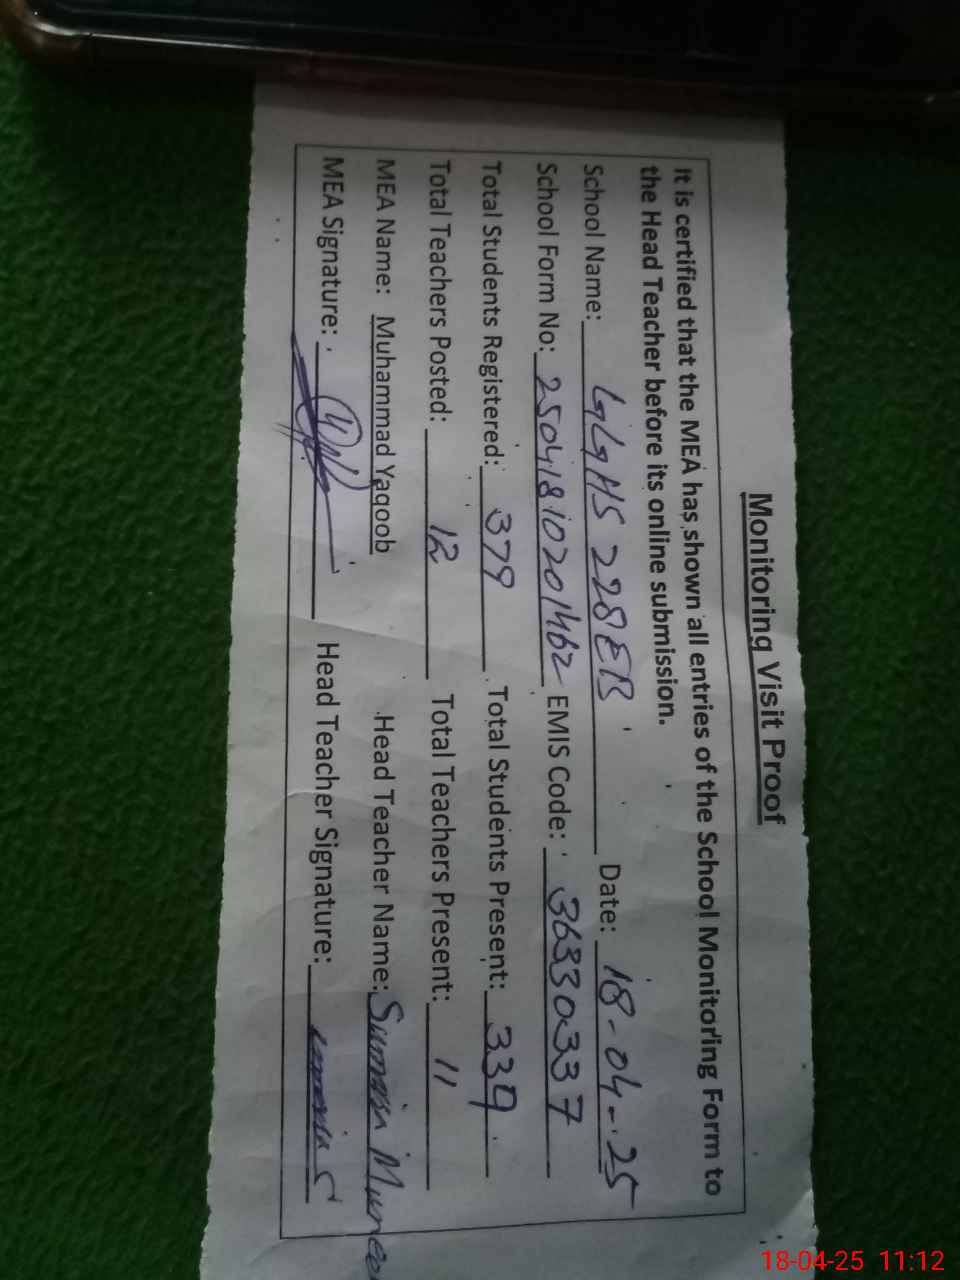 Monitoring Visit Proof
It is certified that the MEA has shown all entries of the School Monitoring Form to
the Head Teacher before its online submission.
School Name: GGHS 228EB Date: 18-04-25
School Form No: 25041810201462 EMIS Code: 36330337
Total Students Registered: 379 Total Students Present: 339
Total Teachers Posted: 12 Total Teachers Present: 11
MEA Name: Muhammad Yaqoob Head Teacher Name: Sumaira
MEA Signature: Head Teacher Signature:
18-04-25 11:12